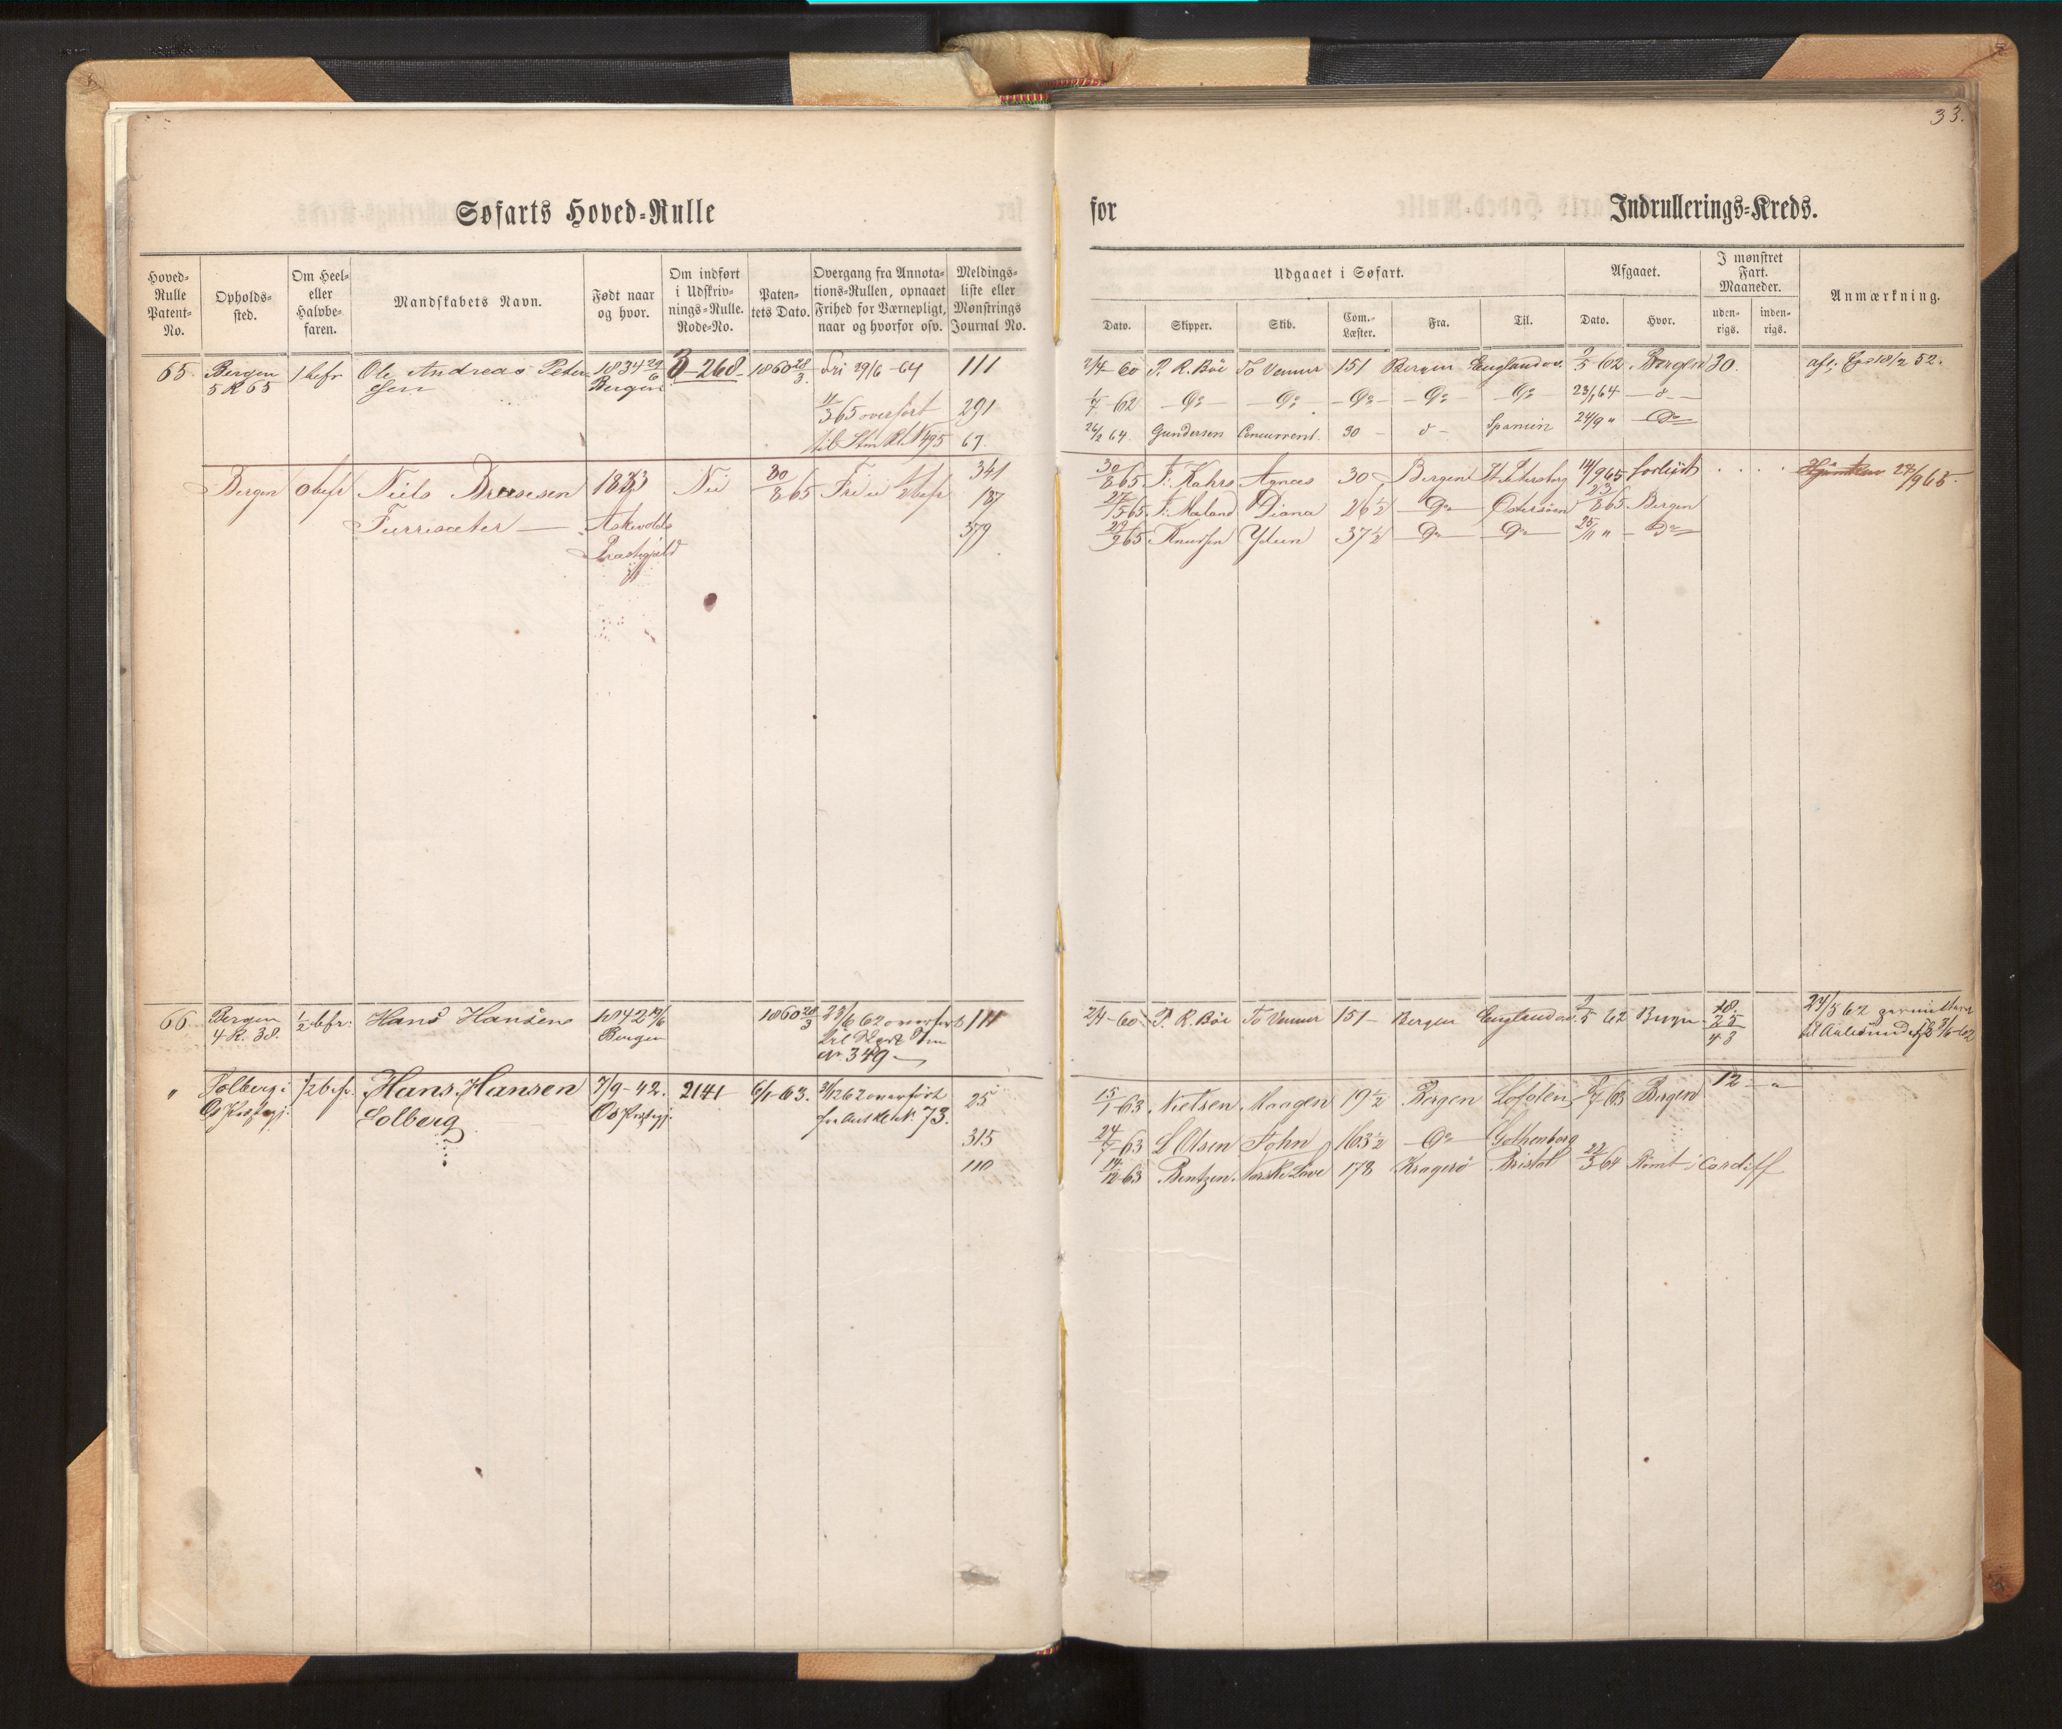 33.
Søfarts Hoved-Rulle
for Indrullerings-Kreds.
Hoved-Rulle Patent-No.
Opholds-sted.
Om Heel- eller Halvbe-faren.
Mandskabets Navn.
Født naar og hvor.
Om indført i Udskriv-nings-Rulle. Rode-No.
Paten-tets Dato.
Overgang fra Annota-tions-Rullen, opnaaet Frihed for Værnepligt, naar og hvorfor osv.
Meldings-liste eller Mønstrings Journal No.
Udgaaet i Søfart.
Afgaaet.
I mønstret Fart. Maaneder.
Anmærkning.
Dato. Skipper. Skib. Com.-Læster. Fra. Til. Dato. Hvor. uden-rigs. inden-rigs.
65. Bergen 1 befr Ole Andreas Peter- 1834 29/6 3-268 1860 28/3 Fri 29/6-64 111
5 R 65 sen Bergen
11/3 65 overført 291
til Stm Rl. N 495 67.
2/4-60 P. R. Böe To Venner 151 Bergen England o. 2/5-62 Bergen 30.
1/7 62 -Do- -Do- -Do- -Do- Do 23/1 64 -d-
26/2 64. Gundersen Concurrent. 30 - d- Spanien 24/9 " -Do-
Bergen 0 befr Niels 1833 Nei 30/8 65 Fri 341
Furrisæter Askevolds 187
Præstegjeld 379
30/8 65 F. Kahrs Agnes 30 Bergen St. Petersborg 14/9 65 forliist 27/9 65.
27/5 65 F. Maland Diana 26½ -Do- Østersøen 23/8 65 Bergen
29/9 65 Knudsen Ydun 37½ -Do- Do 25/11 " -Do-
66. Bergen ½ bfr. Hans Hansen 1842 1860 28/3 23/6 62 overført 111
4 R. 38. Bergen
No 349
2/4-60 P. R. Böe To Venner 151 - Bergen England o. 2/5 62 Bergen 18.
25
43
24/5 62
til Aalesund
" Solberg i ½ befr. Hans Hansen 7/9-42. 2141 6/1-63. 31/12 62 overført 25
Os Prstegj. Solberg Os Prstegj. fra 73.
315
110
15/1-63 Nielsen Maagen 19½ Bergen Lofoden 63 Bergen 12
24/7-63 L Olsen John 163½ -Do- Gothenborg
14/12-63 Bentzen. Norske Löve 178 Kragerö Bristol 22/3 64 Römt i Cardiff